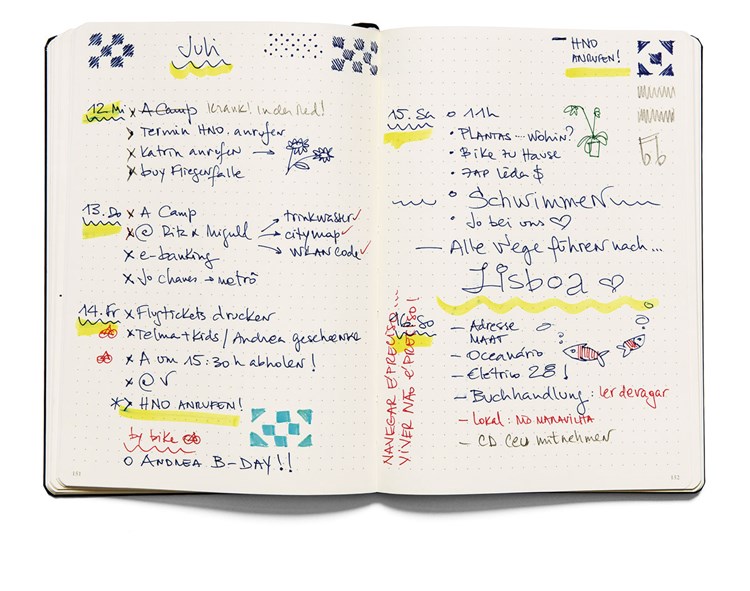 Juli
12. Mi x A Camp krank! in der Red!
> Termin HNO. anrufen
x Katrin anrufen →
x buy Fliegenfalle
13. Do x A Camp
x @ Rita x Miguel → trinkwasser ✓
→ citymap ✓
→ WLAN code ✓
x e-banking
x Jo chaves → metrô
14. Fr x Flytickets drucken
x Telma + kids / Andrea geschenke
x A um 15:30 h abholen!
x @ V
*> HNO ANRUFEN!
by bike
o ANDREA B-DAY!!
111
— HNO
ANRUFEN!
15. Sa o 11h
• PLANTAS ... wohin?
• Bike zu Hause
• ZAP Lêda $
• Schwimmen
• Jo bei uns ♡
— Alle Wege führen nach...
Lisboa ♡
NAVEGAR É PRECISO...
VIVER NÃO É PRECISO!
16. So — Adresse
MAAT
— Oceanário
— Elétrico 28!
— Buchhandlung: ler devagar
— Lokal: NO MARAVILHA
— CD Ceu mitnehmen
112